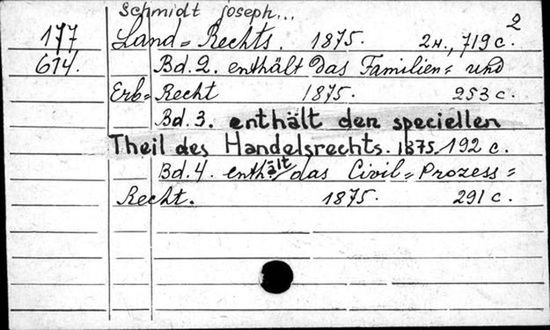 Schmidt Joseph... 2
177 Land=Rechts. 1875. 2н., 719 с.
614. Bd. 2. enthält das Familien= und
Erb=Recht 1875. 253 с.
Bd. 3. enthält den speciellen
Theil des Handelsrechts. 1875. 192 с.
Bd. 4. enthält das Civil=Prozess=
Recht. 1875. 291 с.